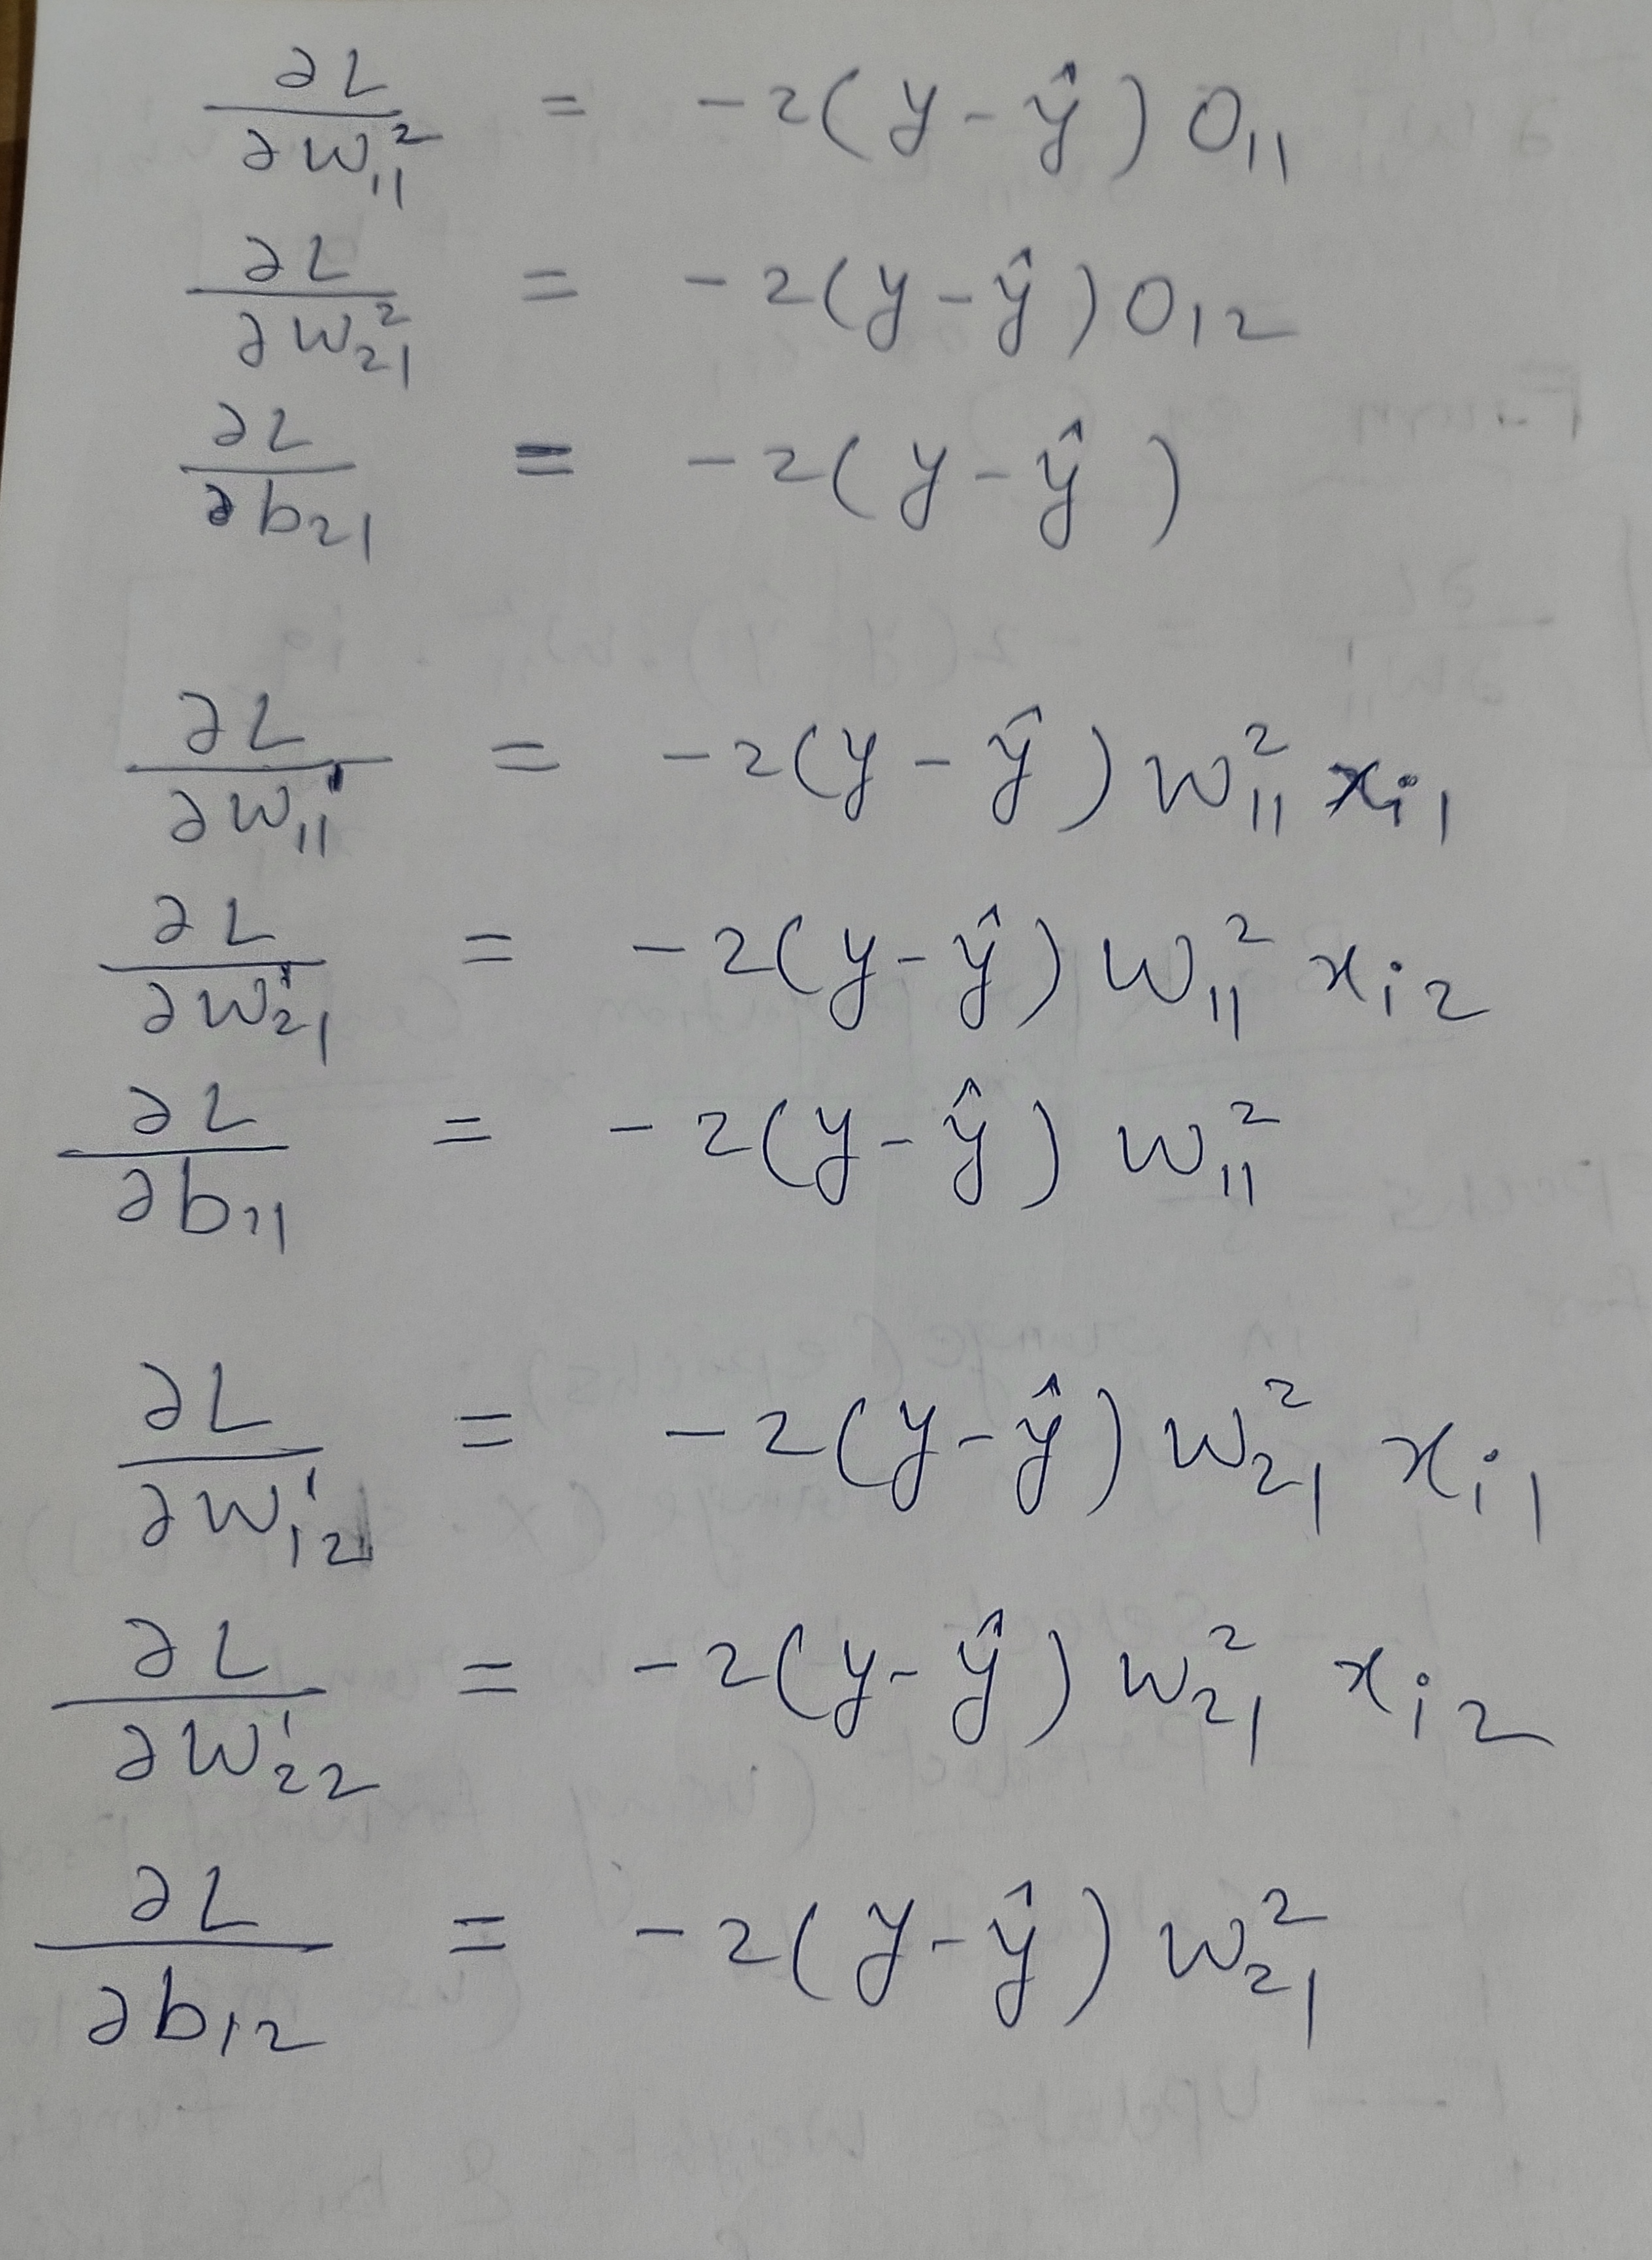 ∂L/∂w₁₁² = -2(y-ŷ) O₁₁
∂L/∂w₂₁² = -2(y-ŷ) O₁₂
∂L/∂b₂₁ = -2(y-ŷ)
∂L/∂w₁₁¹ = -2(y-ŷ) w₁₁² xᵢ₁
∂L/∂w₂₁¹ = -2(y-ŷ) w₁₁² xᵢ₂
∂L/∂b₁₁ = -2(y-ŷ) w₁₁²
∂L/∂w₁₂¹ = -2(y-ŷ) w₂₁² xᵢ₁
∂L/∂w₂₂¹ = -2(y-ŷ) w₂₁² xᵢ₂
∂L/∂b₁₂ = -2(y-ŷ) w₂₁²